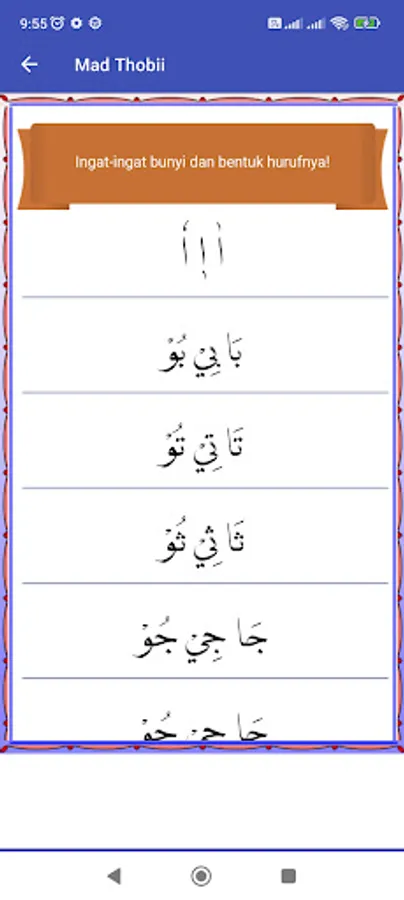 9:55
Mad Thobii
Ingat-ingat bunyi dan bentuk hurufnya!
اٰ اٖ اٗ
بَا بِيْ بُوْ
تَا تِيْ تُوْ
ثَا ثِيْ ثُوْ
جَا جِيْ جُوْ